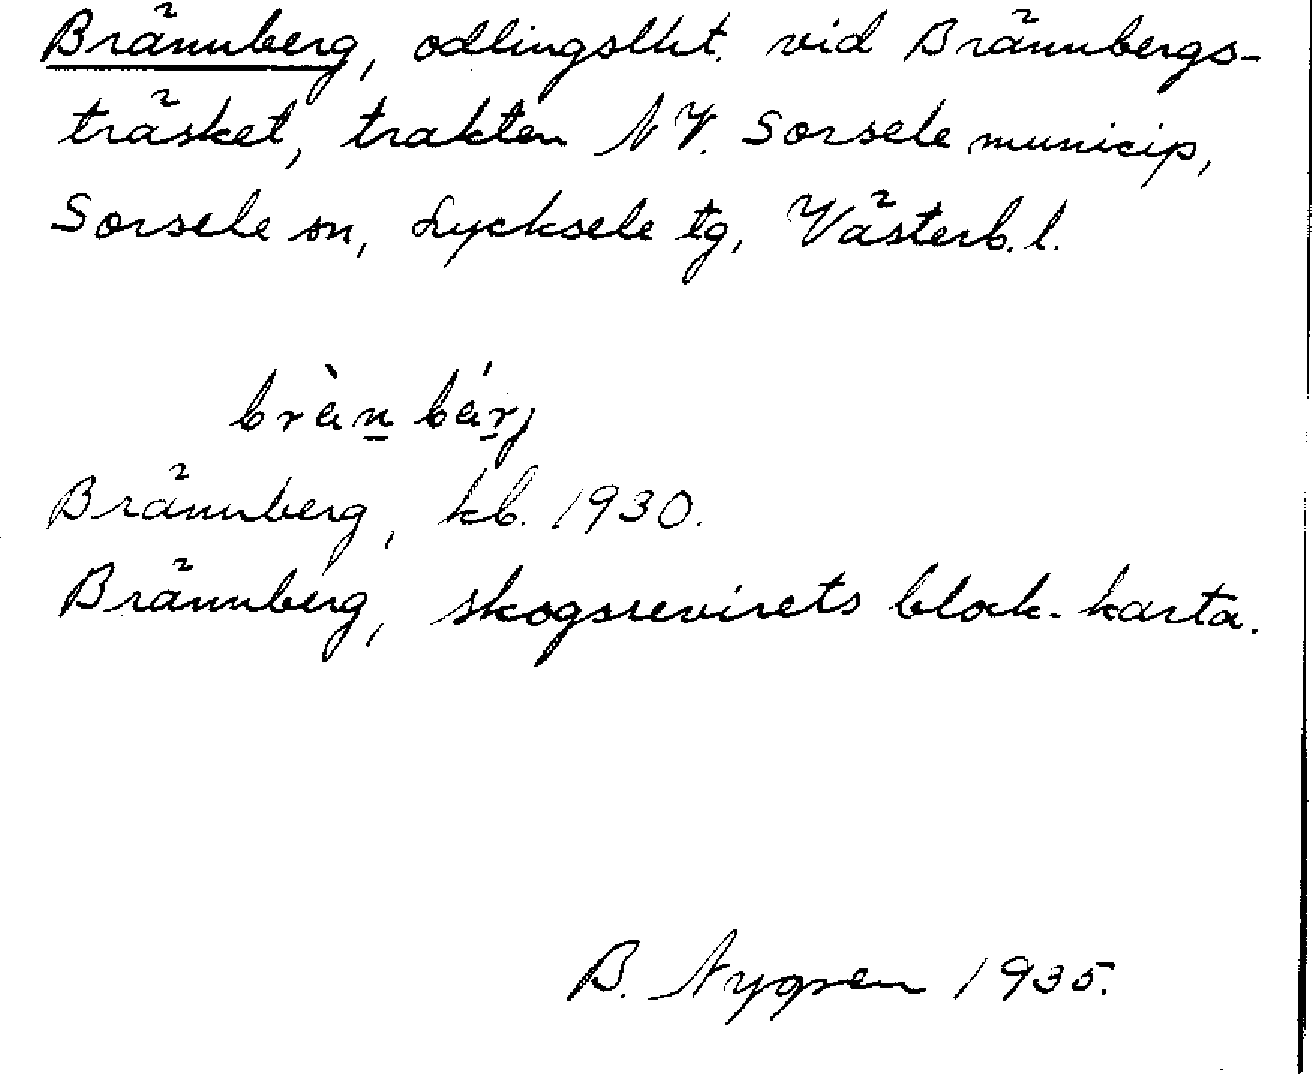 Brännberg, odlingslht. vid Brännbergs-
träsket, trakten NV. Sorsele municip,
Sorsele sn, Lycksele tg, Västerb. l.
bràn bárj
Brännberg, kb. 1930.
Brännberg, skogsrevirets block-karta.
B. Nygren 1935.